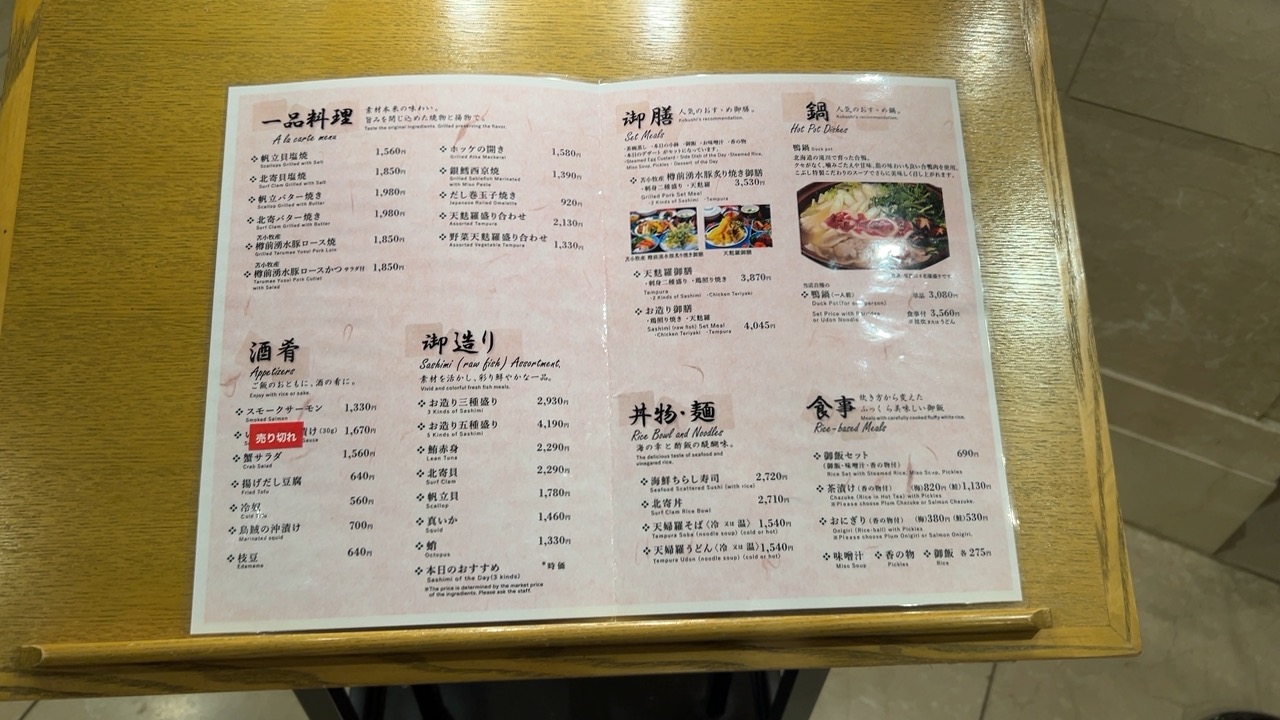 一品料理
A la carte menu
素材本来の味わい。
旨みを閉じ込めた焼物と揚物で。
Taste the original ingredients. Grilled preserving the flavor.
帆立貝塩焼 1,560円
Scallops Grilled with Salt
北寄貝塩焼 1,850円
Surf Clam Grilled with Salt
帆立バター焼き 1,980円
Scallop Grilled with Butter
北寄バター焼き 1,980円
Surf Clam Grilled with Butter
苫小牧産
樽前湧水豚ロース焼 1,850円
Grilled Tarumae Yusui Pork Loin
苫小牧産
樽前湧水豚ロースかつ サラダ付 1,850円
Tarumae Yusui Pork Cutlet
with Salad
ホッケの開き 1,580円
Grilled Atka Mackerel
銀鱈西京焼 1,390円
Grilled Sablefish Marinated
with Miso Paste
だし巻玉子焼き 920円
Japanese Rolled Omelette
天麩羅盛り合わせ 2,130円
Assorted Tempura
野菜天麩羅盛り合わせ 1,330円
Assorted Vegetable Tempura
酒肴
Appetisers
ご飯のおともに、酒の肴に。
Enjoy with rice or sake.
スモークサーモン 1,330円
Smoked Salmon
売り切れ
漬け (30g) 1,670円
Sauce
蟹サラダ 1,560円
Crab Salad
揚げだし豆腐 640円
Fried Tofu
冷奴 560円
烏賊の沖漬け 700円
Marinated squid
枝豆 640円
Edamame
御造り
Sashimi (raw fish) Assortment.
素材を活かし、彩り鮮やかな一品。
Vivid and colorful fresh fish meals.
お造り三種盛り 2,930円
3 Kinds of Sashimi
お造り五種盛り 4,190円
5 Kinds of Sashimi
鮪赤身 2,290円
Lean Tuna
北寄貝 2,290円
Surf Clam
帆立貝 1,780円
Scallop
真いか 1,460円
Squid
蛸 1,330円
Octopus
本日のおすすめ *時価
Sashimi of the Day(3 kinds)
※The price is determined by the market price
of the ingredients. Please ask the staff.
御膳
Set Meals
人気のおすゝめ御膳。
Kobushi's recommendation.
・茶碗蒸し ・本日の小鉢 ・御飯 ・お味噌汁 ・香の物
・本日のデザート がセットになっています。
・Steamed Egg Custard ・Side Dish of the Day ・Steamed Rice,
Miso Soup, Pickles ・Dessert of the Day
苫小牧産 樽前湧水豚炙り焼き御膳
・刺身二種盛り ・天麩羅 3,530円
Grilled Pork Set Meal
・2 Kinds of Sashimi ・Tempura
苫小牧産 樽前湧水豚炙り焼き御膳
天麩羅御膳
天麩羅御膳
・刺身二種盛り ・鶏照り焼き 3,870円
Tempura
・2 Kinds of Sashimi ・Chicken Teriyaki
お造り御膳
・鶏照り焼き ・天麩羅 4,045円
Sashimi (raw fish) Set Meal
・Chicken Teriyaki ・Tempura
鍋
Hot Pot Dishes
人気のおすゝめ鍋。
Kobushi's recommendation.
鴨鍋 Duck pot
北海道の滝川で育った合鴨。
クセがなく、噛みごたえや甘味、脂の味わいも良い合鴨肉を使用。
こぶし特製こだわりのスープでさらに美味しく召し上がれます。
当店自慢の
鴨鍋(一人前) 単品 3,080円
Duck Pot(for one person)
食事付 3,560円
or Udon Noodle
丼物・麺
Rice Bowl and Noodles
海の幸と酢飯の醍醐味。
The delicious taste of seafood and
vinegared rice.
海鮮ちらし寿司 2,720円
Seafood Scattered Sushi (with rice)
北寄丼 2,710円
Surf Clam Rice Bowl
天婦羅そば〈冷 又は 温〉 1,540円
Tempura Soba (noodle soup) (cold or hot)
天婦羅うどん〈冷 又は 温〉 1,540円
Tempura Udon (noodle soup) (cold or hot)
食事
Rice-based Meals
炊き方から変えた
ふっくら美味しい御飯
Meals with carefully cooked fluffy white rice.
御飯セット 690円
(御飯・味噌汁・香の物)
Rice Set with Steamed Rice, Miso Soup, Pickles
茶漬け (香の物付) (梅)820円 (鮭)1,130円
Chazuke (Rice in Hot Tea) with Pickles
※Please choose Plum Chazuke or Salmon Chazuke.
おにぎり (香の物付) (梅)380円 (鮭)530円
Onigiri (Rice-ball) with Pickles
※Please choose Plum Onigiri or Salmon Onigiri.
味噌汁 香の物 御飯 各275円
Miso Soup Pickles Rice